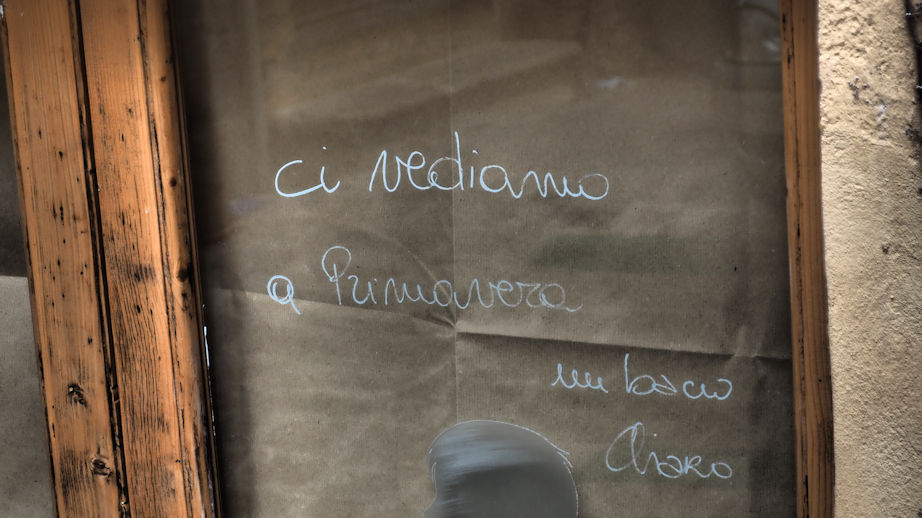 ci vediamo
a Primavera
un bacio
Chiara